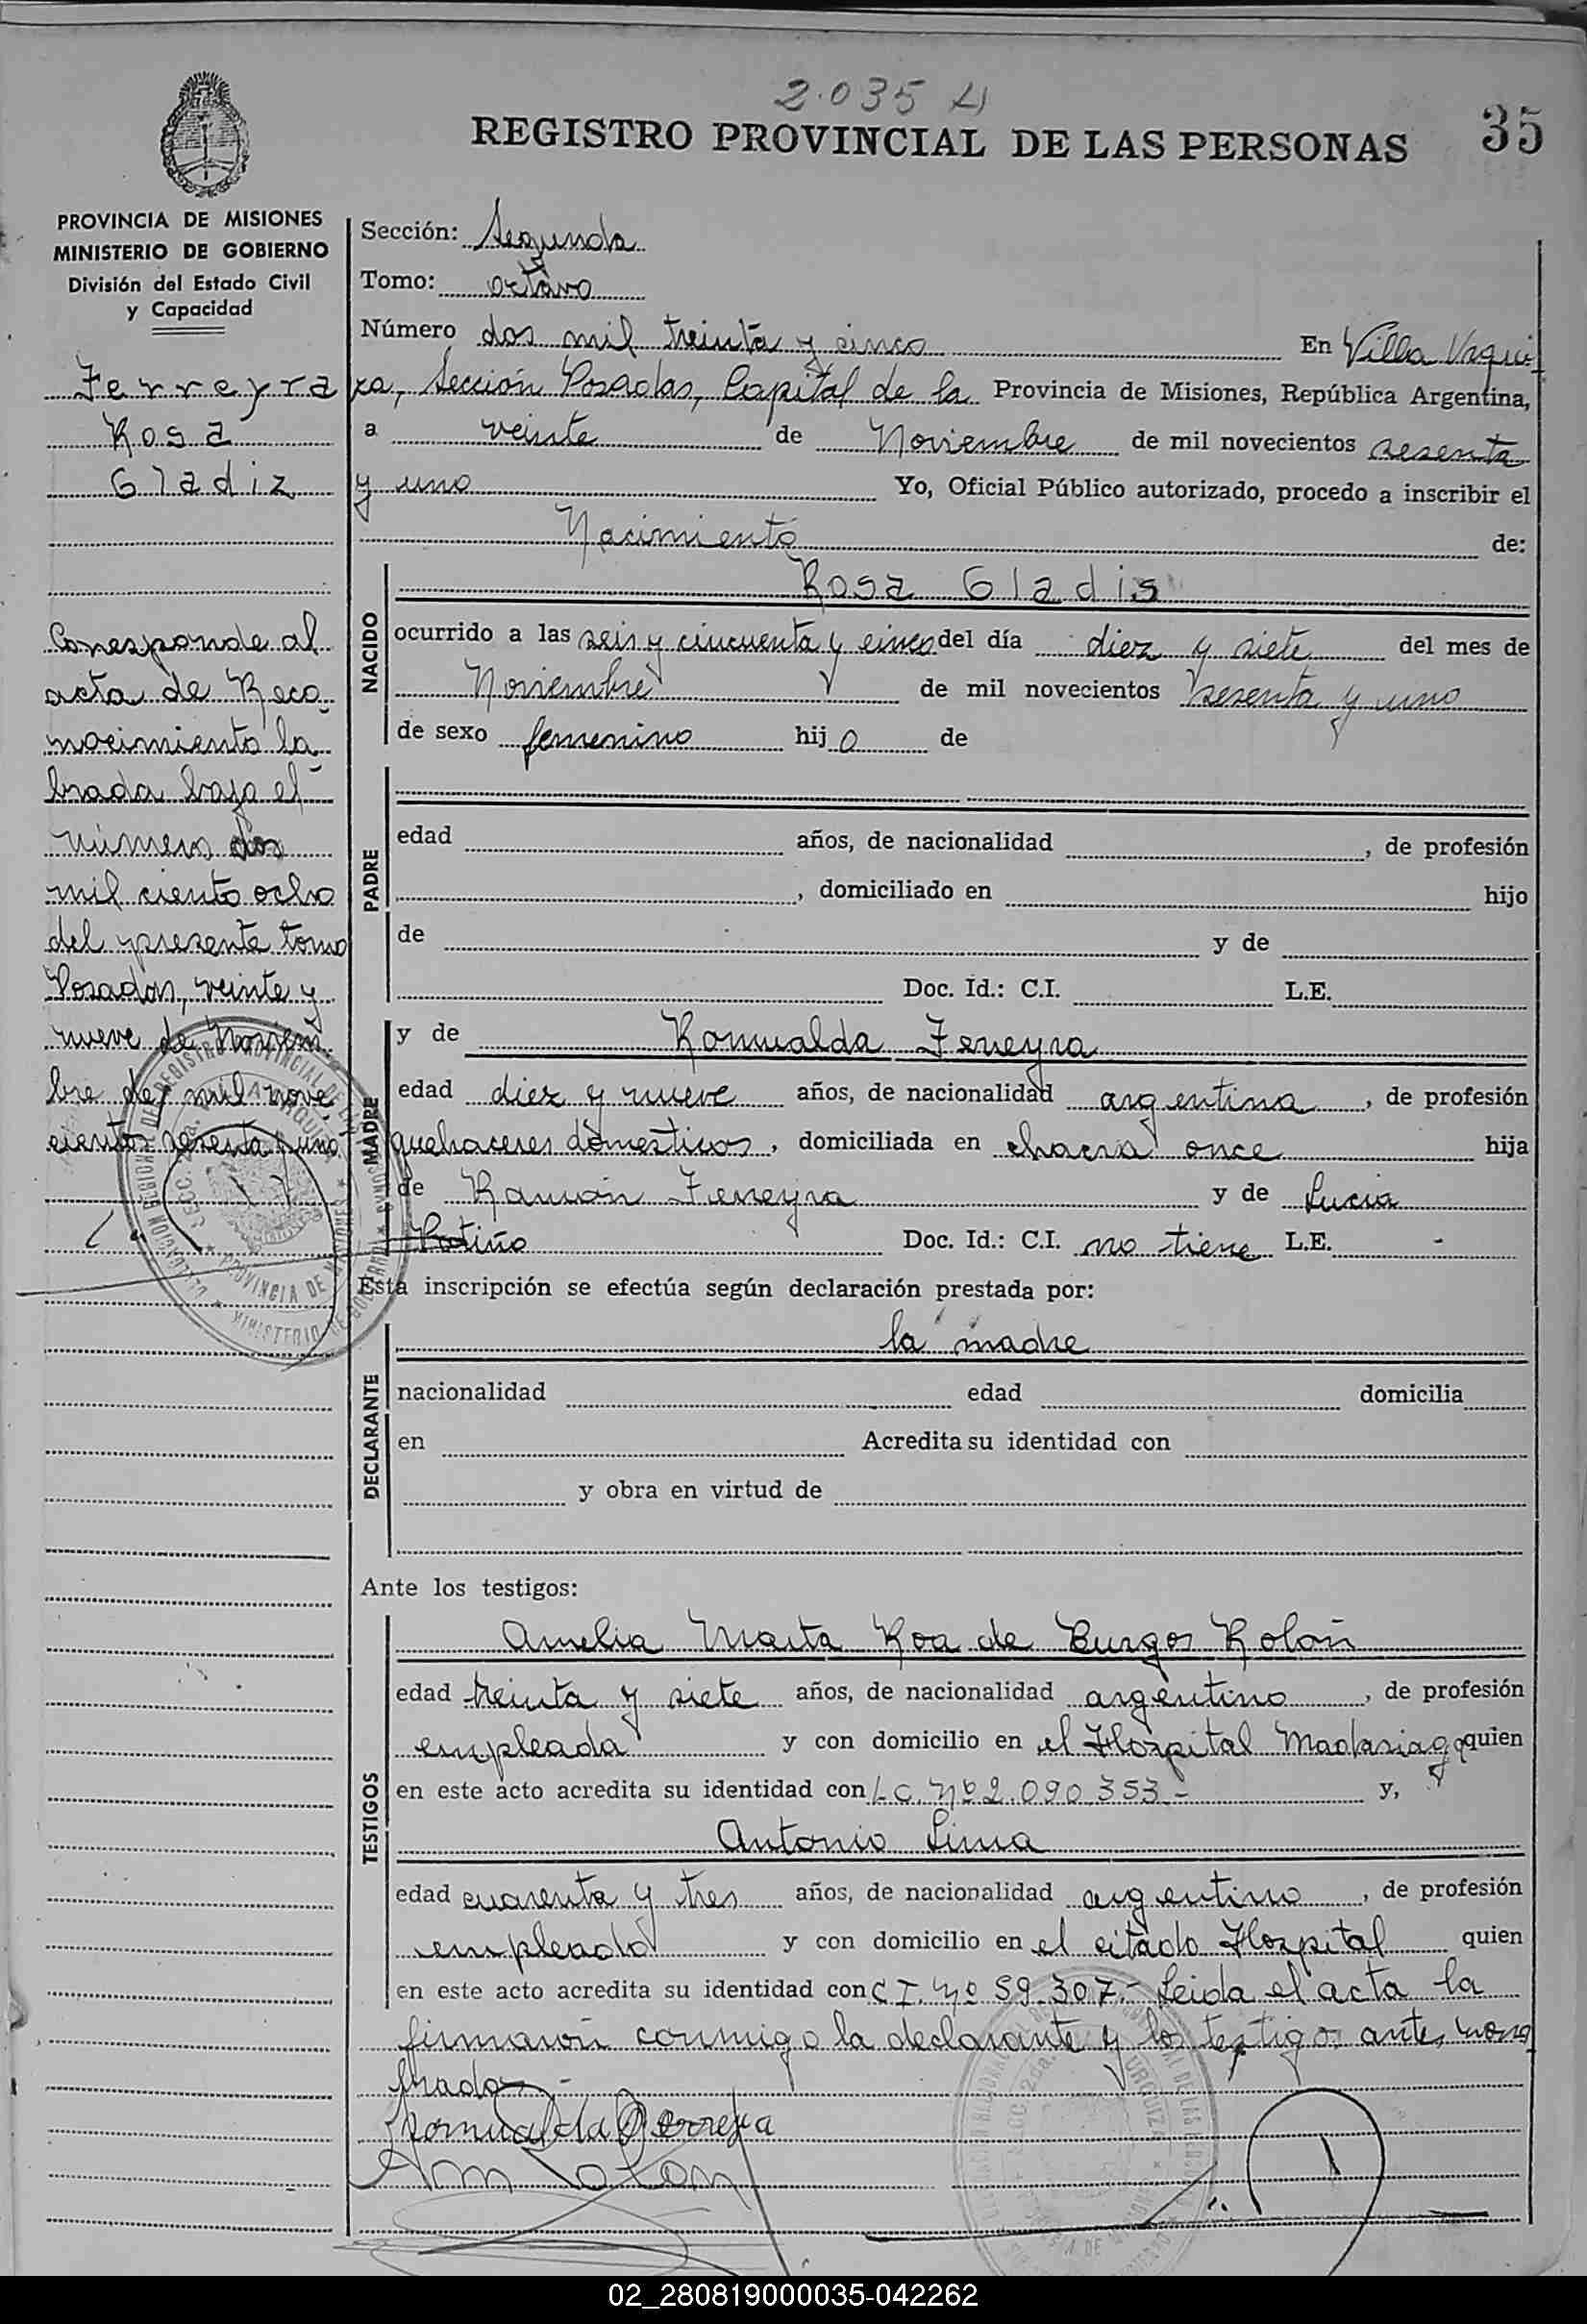 2.035
REGISTRO PROVINCIAL DE LAS PERSONAS
35
PROVINCIA DE MISIONES
MINISTERIO DE GOBIERNO
División del Estado Civil
y Capacidad
Ferreyra
Rosa
Gladiz
Corresponde al
acta de Reco-
nocimiento la-
brada bajo el
número dos
mil ciento ocho
del presente tomo
Posadas, veinte y
nueve de Noviem-
bre de mil nove
cientos sesenta y uno
Sección: Segunda
Tomo: octavo
Número dos mil treinta y cinco En Villa Urqui-
za, Sección Posadas, Capital de la Provincia de Misiones, República Argentina,
a veinte de Noviembre de mil novecientos sesenta
y uno Yo, Oficial Público autorizado, procedo a inscribir el
Nacimiento de:
NACIDO
Rosa Gladis
ocurrido a las seis y cincuenta y cinco del día diez y siete del mes de
Noviembre de mil novecientos sesenta y uno
de sexo femenino hij a de
PADRE
edad años, de nacionalidad , de profesión
, domiciliado en hijo
de y de
Doc. Id.: C.I. L.E.
MADRE
y de Romualda Ferreyra
edad diez y nueve años, de nacionalidad argentina, de profesión
quehaceres domesticos, domiciliada en chacra once hija
de Ramón Ferreyra y de Lucia
Potiño Doc. Id.: C.I. no tiene L.E. -
Esta inscripción se efectúa según declaración prestada por:
DECLARANTE
la madre
nacionalidad edad domicilia
en Acredita su identidad con
y obra en virtud de
Ante los testigos:
TESTIGOS
Amelia Marta Roa de Burgos Rolón
edad treinta y siete años, de nacionalidad argentino, de profesión
empleada y con domicilio en el Hospital Madariaga quien
en este acto acredita su identidad con L.C. Nº 2.090.353- y,
Antonio Lima
edad cuarenta y tres años, de nacionalidad argentino, de profesión
empleado y con domicilio en el citado Hospital quien
en este acto acredita su identidad con C I. Nº 59.307.- Leida el acta la
firmaron conmigo la declarante y los testigos antes nom
brados.-
Romualda Ferreyra
02_280819000035-042262